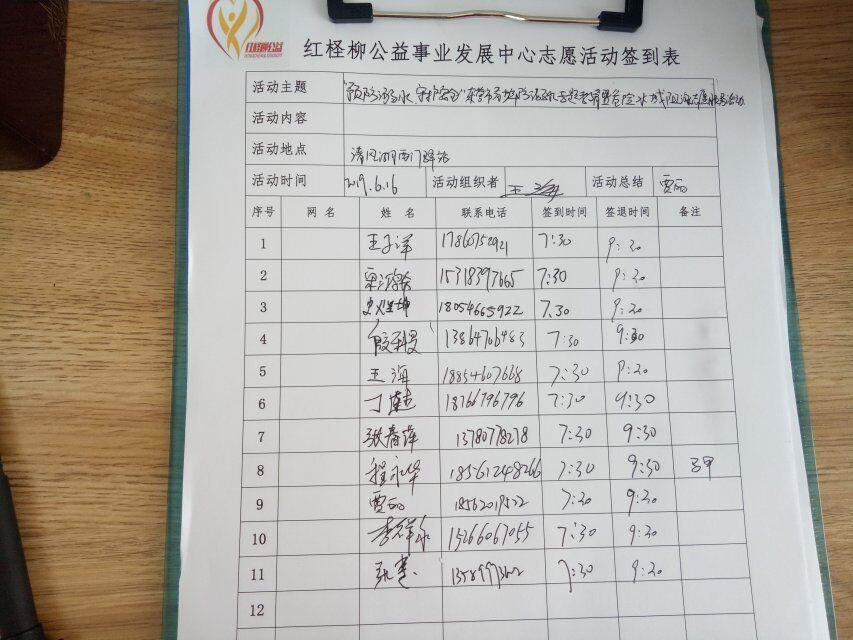 红柽公益
红柽柳公益事业发展中心志愿活动签到表
活动主题 "预防溺水,守护安全"
活动内容
活动地点 清风湖西门驿站
活动时间 2019.6.16 活动组织者 王海 活动总结 贾丽
序号 网名 姓名 联系电话 签到时间 签退时间 备注
1 王子洋 17860752921 7:30 9:30
2 15318397665 7:30 9:30
3 18054665922 7:30 9:30
4 13864706483 7:30 9:30
5 王海 18854607668 7:30 9:30
6 丁建 18766796796 7:30 9:30
7 张春萍 13780778278 7:30 9:30
8 程永华 18561248266 7:30 9:30
9 贾丽 18562019522 7:30 9:30
10 15266067055 7:30 9:30
11 7:30 9:30
12